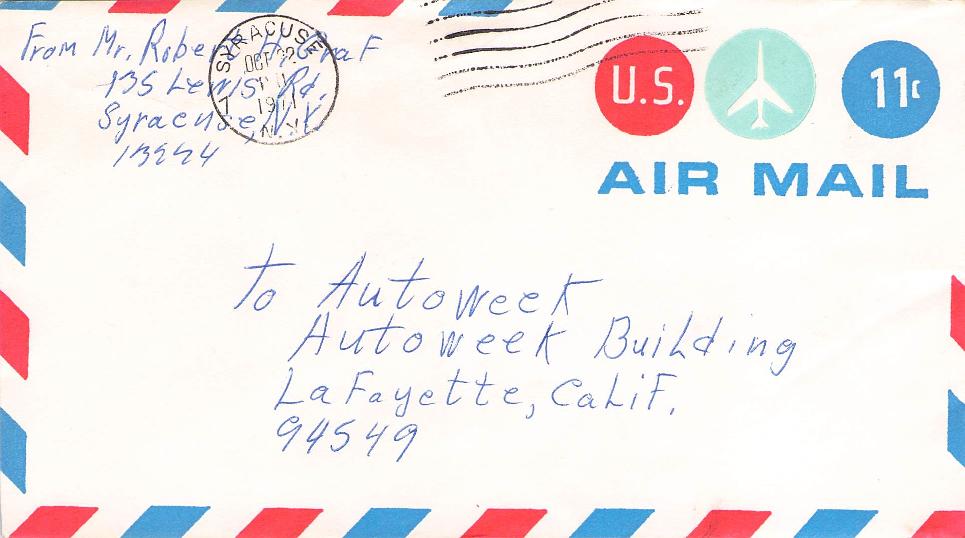 From Mr. Robert H. Graf
135 Lewis Rd.
Syracuse, N.Y.
SYRACUSE
OCT 22
PM
N.Y.
U.S.
11c
AIR MAIL
To Autoweek
Autoweek Building
LaFayette, Calif.
94549